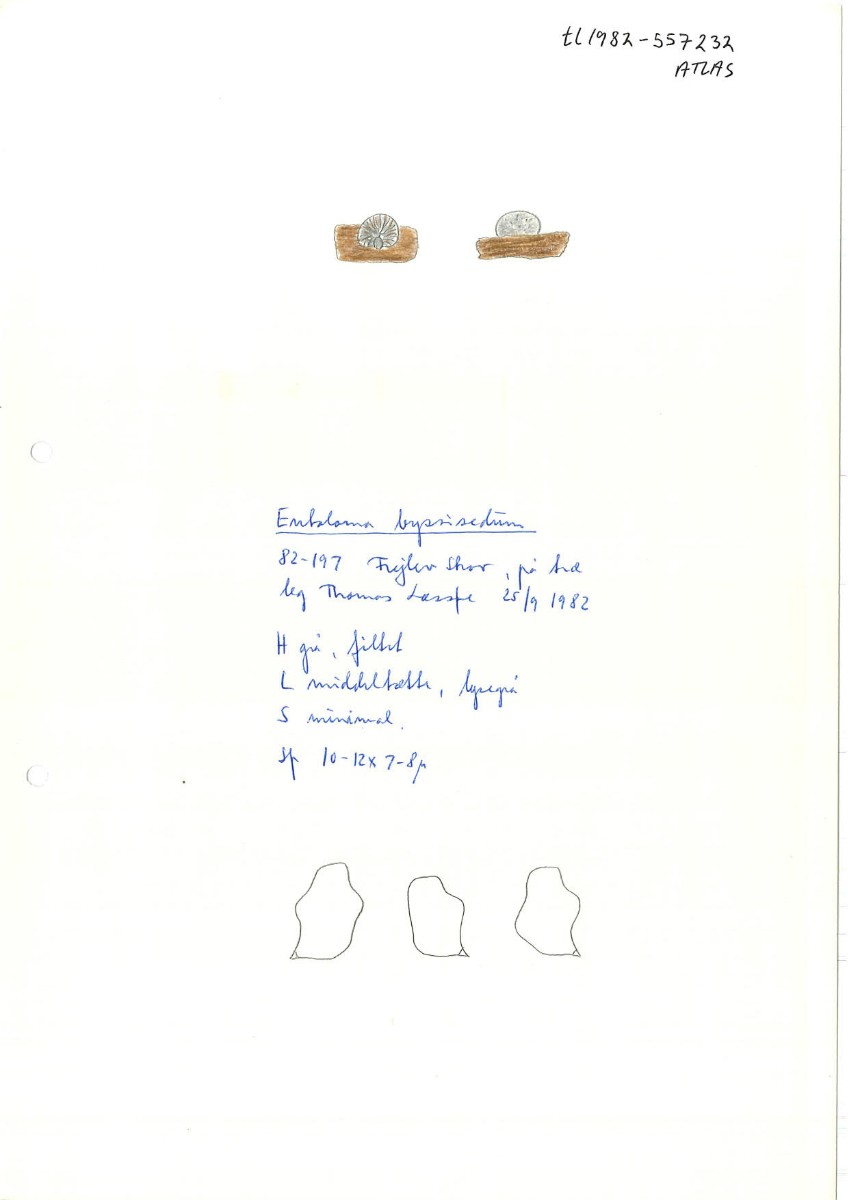 tl1982-557232
ATLAS
Entoloma byssisedum
82-197 Frejlev Skov, på træ
leg Thomas Læssøe 25/9 1982
H grå, filtet
L middeltætte, lysegrå
S minimal.
Sp 10-12x7-8µ